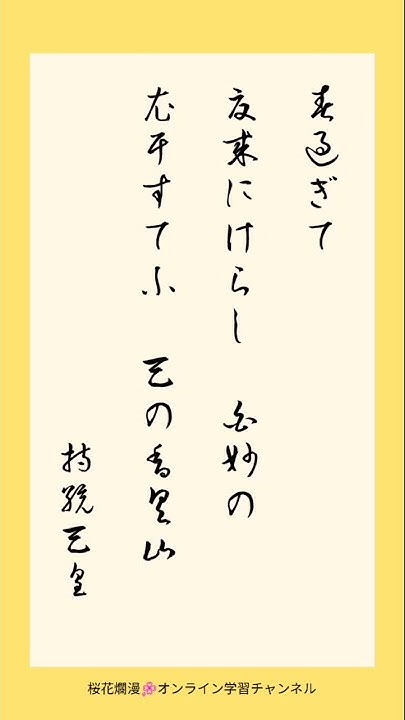 春過ぎて
夜来にけらし 白妙の
衣干すてふ 天の香具山
持統天皇
桜花爛漫🌸オンライン学習チャンネル